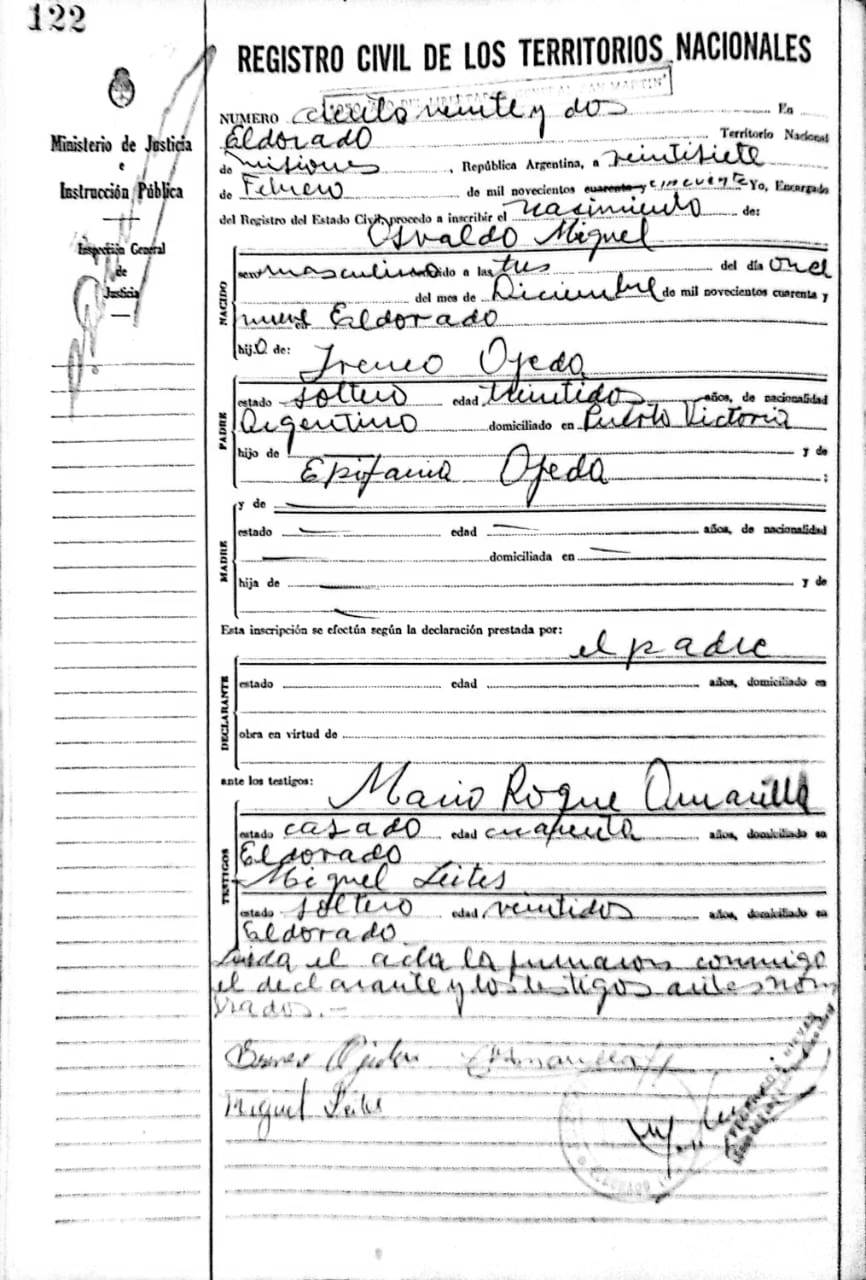 122
REGISTRO CIVIL DE LOS TERRITORIOS NACIONALES
Ministerio de Justicia
e
Instrucción Pública
Inspección General
de
Justicia
NUMERO ciento veinte y dos En
Eldorado Territorio Nacional
de Misiones, República Argentina, a veintisiete
de Febrero de mil novecientos cuarenta y cincuenta Yo, Encargado
del Registro del Estado Civil, procedo a inscribir el nasimiento de:
Osvaldo Miguel
NACIDO
sexo masculino nacido a las tres del día once
del mes de Diciembre de mil novecientos cuarenta y
nueve Eldorado
hijo de:
Ireneo Ojeda
PADRE
estado soltero edad veintidos años, de nacionalidad
Argentino domiciliado en Puerto Victoria
hijo de y de
Epifania Ojeda ;
y de
MADRE
estado edad años, de nacionalidad
domiciliada en
hija de y de
Esta inscripción se efectúa según la declaración prestada por:
el padre
DECLARANTE
estado edad años, domiciliado en
obra en virtud de
ante los testigos:
Mario Roque Amarilla
TESTIGOS
estado casado edad cuarenta años, domiciliado en
Eldorado
Miguel Leites
estado soltero edad veintidos años, domiciliado en
Eldorado
Leida el acta la firmaron conmigo
el declarante y los testigos antes nom
brados.-
Ireneo Ojeda Amarilla
Miguel Leites